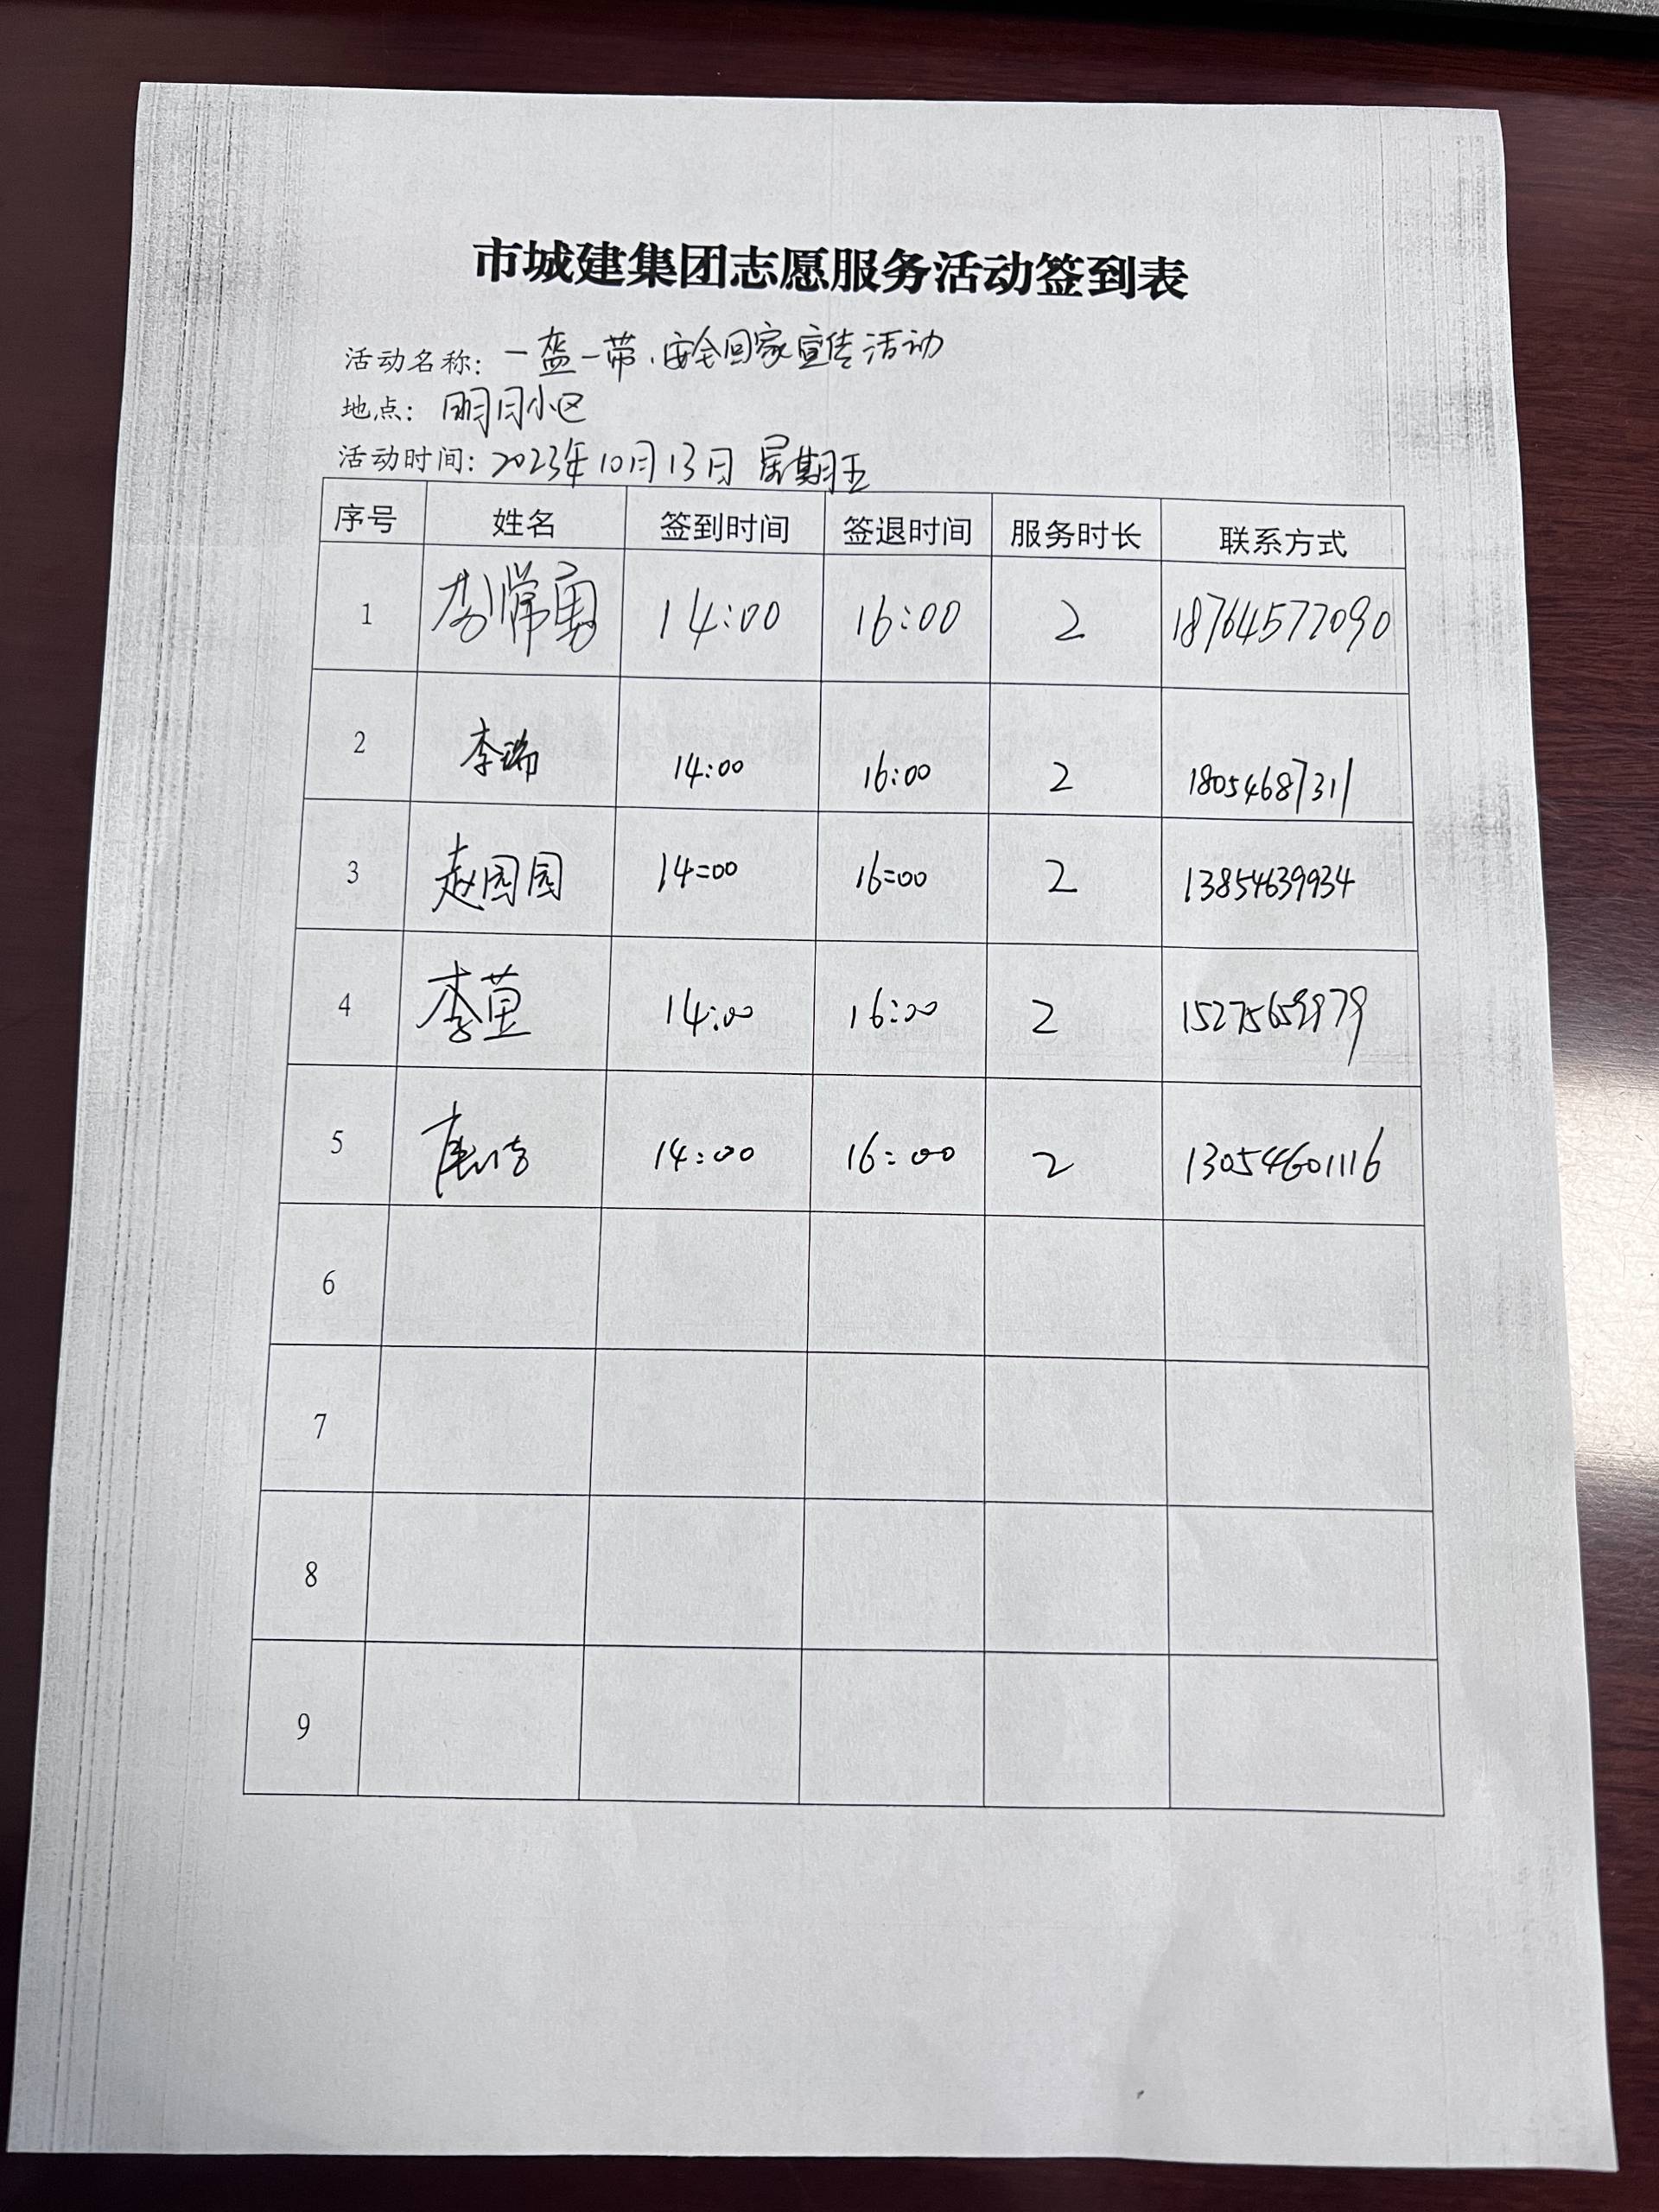 市城建集团志愿服务活动签到表
活动名称：一盔一带、安全回家宣传活动
地点：明月小区
活动时间：2023年10月13日 星期五
序号 姓名 签到时间 签退时间 服务时长 联系方式
1 李常勇 14:00 16:00 2 18764577090
2 李瑞 14:00 16:00 2 18054687311
3 赵园园 14:00 16:00 2 13854639934
4 李萱 14:00 16:00 2 15275659979
5 14:00 16:00 2 13054601116
6
7
8
9